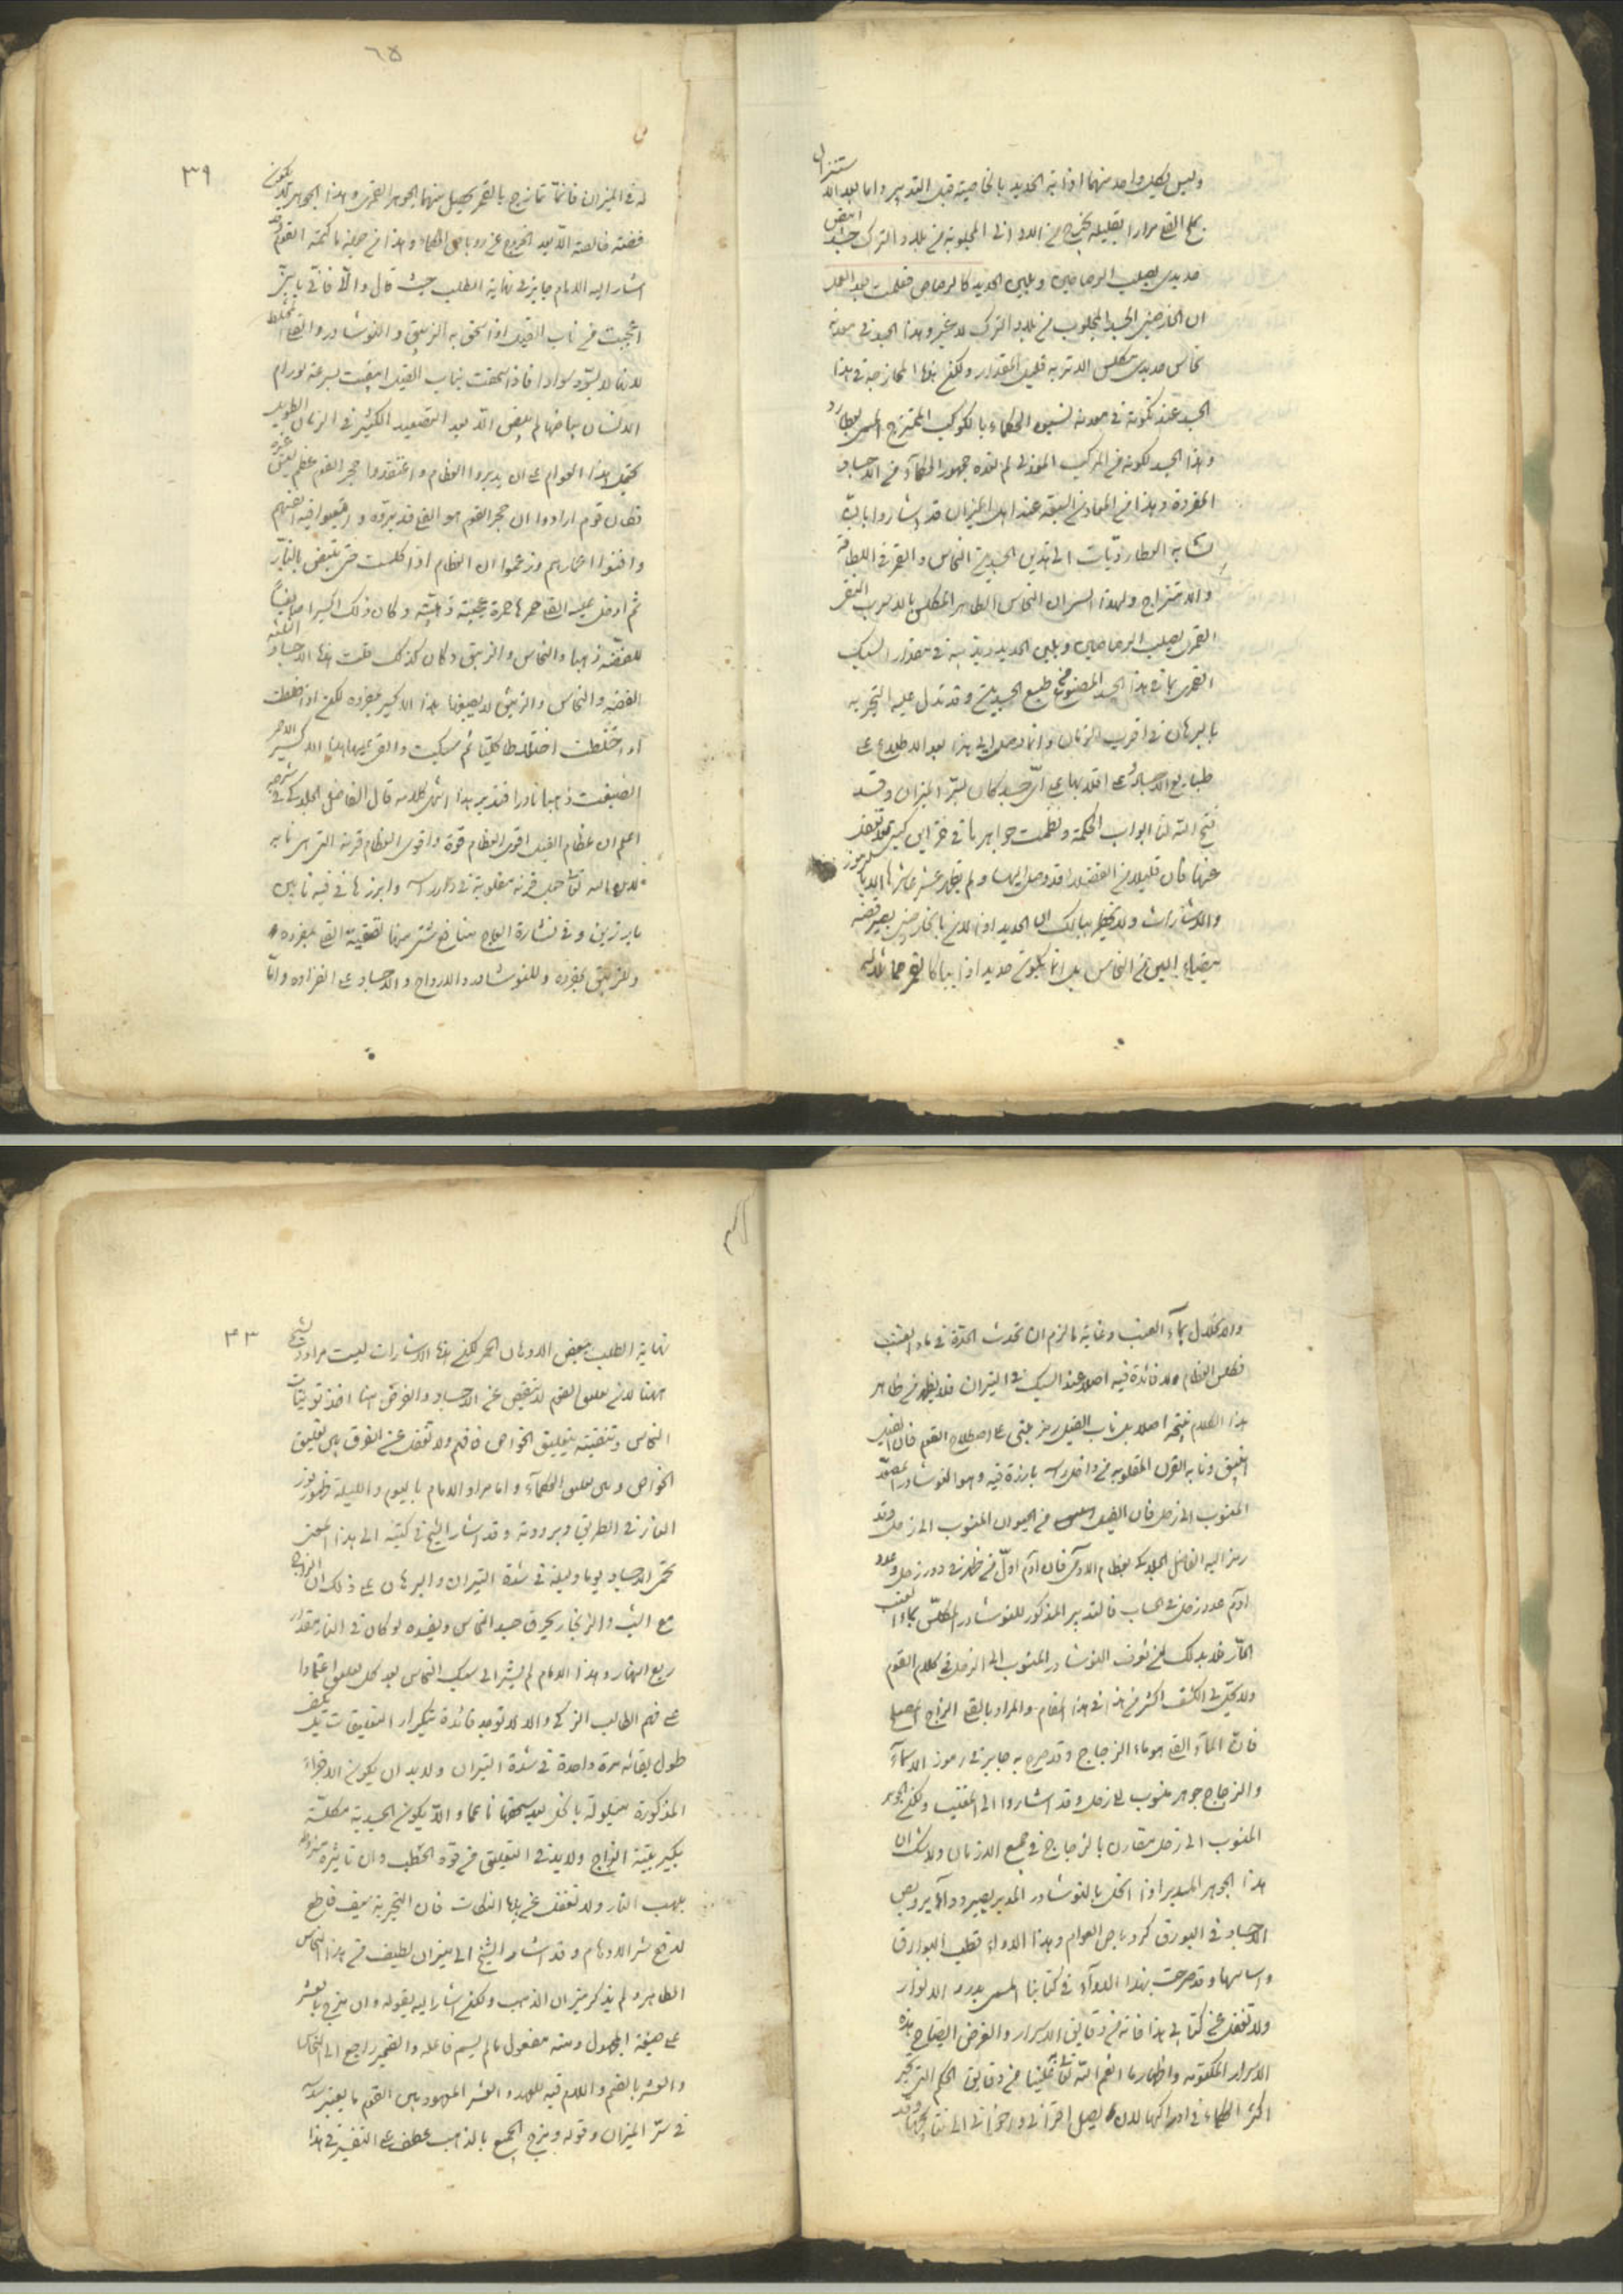 وليس لكل واحد منهما اذابة الحديد بالخاصية قبل التدبير واما بعد الاستنزال
بملح القلي مرارا بقليله يخرج من الاواني المجلوبة من بلاد الترك جسد ابيض
حديدي يصلب الرصاصين ويلين الحديد كالرصاص فعلمت بعد العمل
ان الخارصيني الجسد المجلوب من بلاد الترك لا غير وهذا الجسد في معدنه
نحاس حديدي مكلس الاتربه قليل المقدار ولكن لهذا الممازجة في هذا
الجسد عند تكونه في معدنه نسبوه الحكماء بالكوكب الممتزج المسمى بعطارد
وهذا الجسد لكونه من المركب المعدني لم تعده جمهور الحكماء من الاجساد
المفردة وهذا من المعادن السبعة عند اهل الميزان قد اشاروا بان
تشابه العطارديات الى هذين الجسدين النحاس والقمر في اللطافة
والامتزاج ولهذا السر ان النحاس الطاهر المكلس بالادوية البيض
القمري يصلب الرصاصين ويلين الحديد ويذيبه في مقدار السبك
القمري بما في هذا الجسد المصنوع من طبع الجسدين وقد تدل عليه التجربه
بالبرهان في اقرب الزمان وانما دخل لي هذا بعد الاطلاع على
طبايع الاجساد على اقلابها على اي جسد كان بسر الميزان وقد
فتح الله لنا ابواب الحكمة ونظمت جواهرها في خزاين كتبي فلا تغفل
عنها فان قليلا من الفضلاء قد وصل اليها ولم يظهر عشر عاشرها الا بالرموز
والاشارات ولا يخطر ببالك ان الحديد اذا لان بالخارصيني يصير فضه
بيضاء الين من النحاس بل انما يكون حديدا ذايبا كالقمر مماثلا له
٦٥
٣٩
له في الميزان فانما تمازج بالقمر يحصل منهما الجوهر القمري وهذا الجوهر لا يكون
فضة خالصة الا بعد الخروج عن روباص الحكماء وهذا من جملة ما كتمه القوم وقد
اشار اليه الامام جابر في نهاية الطلب حيث قال والا فاني يا بني
اعجبت من ناب الفيل اذا سحق به الزيبق والنوشادر والقلي المخلط
لانها لا تسود سوادا فاذا سحقت بناب الفيل ابيضت بسرعة ولو رام
الانسان بياضها لم تبيض الا بعد التصعيد الكثير في الزمان الطويل
تحمل هذا العوام على ان يدبروا العظام واعتقدوا حجر القوم عظم بعض غيره
فكان قوم ارادوا ان حجر القوم هو القلي فدبروه واتعبوا فيه انفسهم
وافنوا اعمارهم وزعموا ان العظام اذا كلست حتى تبيض بالنار
ثم ادخل عليه القلي حمرها حمرة عجيبة ذهبية وكان ذلك اكسيرا صابغا
للفضة ذهبا والنحاس والزيبق وكان كذلك قلت هذه الاجساد الثلثه
الفضة والنحاس والزيبق لا يصبغها هذا الاكسير بمفرده لكن اذا خلطت
او اختلطت اختلاطا كليا ثم سبكت والقي عليها هذا الاكسير الاحمر
انصبغت ذهبا نادرا فتدبر هذا انتهى كلامه قال الفاضل الجلدكي في شرحه
اعلم ان عظام الفيل اقوى العظام قوة واقوى العظام قرنه التي هي نابه
لان الله تعالى جعل قرنه مقلوبة في داره راسه وابرزها في فيه نابين
بارزين وفي نشارة العاج منافع شتى منها تنقية القلي بمفرده
وللزيبق بمفرده وللنوشادر والارواح والاجساد على انفراده واما
والاحلال بماء العنب وغاية ما لزم ان تحدث الحدة في ماء العنب
فكلس العظام ولا فائدة فيه اصلا عند السبك في النيران فلا يظهر من ظاهر
هذا الكلام نتيجة اصلا بل ناب الفيل رمز مبني على اصطلاح القوم فان الفيل
الزيبق ونابه القرن المقلوبه من داخل راسه بارزة فيه وهو النوشادر المصعد
المنسوب الى زحل فان الفيل من الحيوان المنسوب الى زحل وقد
رمز اليه الفاضل الجلدكي بعظام الادمي فان ادم اول من ظهر في دور زحل وعدد
ادم عدد زحل في الحساب فالتدبير المذكور للنوشادر المكلس بماء العنب
الحار فلا بد لك من تعرف النوشادر المنسوب الى الزحل في كلام القوم
ولا يمكن الكشف اكثر من هذا في هذا المقام والمراد بالقلي الزاج الاصلي
فان الماء القلي هو ماء الزجاج وقد صرح به جابر في رموز الاسماء
والزجاج جوهر منسوب الى زحل وقد اشاروا الى العنب ولكن الجوهر
المنسوب الى زحل مقارن بالزجاج في جميع الازمان ولا شك ان
هذا الجوهر المدبر اذا انحل بالنوشادر المدبر يصير دواء يروبص
الاجساد في البورق كروباص العوام وهذا الدواء قطب البوارق
واساسها وقد صرحت بهذا الدواء في كتابنا المسمى بدرة الانوار
ولا تغفل عن كتابي هذا فانه من دقايق الاسرار والغرض ايضاح هذه
الاسرار المكتومه واظهار ما انعم الله تعالى علينا من دقايق الحكم التي تحير
اكثر الحكماء في ادراكها لان يصل اخواني واحزاني الى نتايجها وقد
٤٣
نهاية الطلب ببعض الادهان الحمر لكن هذه الاشارات ليست مراد الشيخ
ههنا لان علق القوم لا تنقص عن الاجساد والغرض هنا اخذ توتيات
النحاس وتنقيته بتعليق الخواص فافهم ولا تغفل عن الفرق بين تعليق
الخواص وبين تعليق الحكماء واما مراد الامام باليوم والليلة ظهور نور
الغاز في الطريق وبرودته وقد اشار الشيخ في كتبه الى هذا المعنى
تحمى الاجساد يوما وليلة في شدة النيران والبرهان على ذلك ان الزاج
مع الشب والزنجار يحرق جسد النحاس ويفسده لو كان في النار مقدار
ربع النهار وهذا الامام لم يشر الى سبك النحاس بعد كل تعليق اعتمادا
على فهم الطالب الزكي والا لا توجد فائدة بتكرار التعليقات بل يكفي
طول بقائه مرة واحدة في شدة النيران ولا بد ان يكون الاجزاء
المذكورة مبلولة بالخل بعد سحقها ناعما والا يكون الجسدية مكلسة
بكبريتية الزاج ولا بد في التعليق من قوة الحطب وان تاثيره منوط
بلهب النار ولا تغفل عن هذه النكات فان التجربة سيف قاطع
لدفع شر الاوهام وقد اشار الشيخ الى ميزان لطيف في هذا النحاس
الطاهر ولم يذكر ميزان الذهب ولكن اشار اليه بقوله وان مزج بالعشر
على صيغة المجهول ومنه مفعول ما لم يسم فاعله والضمير راجع الى النحاس
والعشر بالضم واللام فيه للعهد والعشر المعهود بين القوم ما يعتبر به
في سر الميزان وقوله ومزج الجميع بالذهب عطف على التفسير في هذا